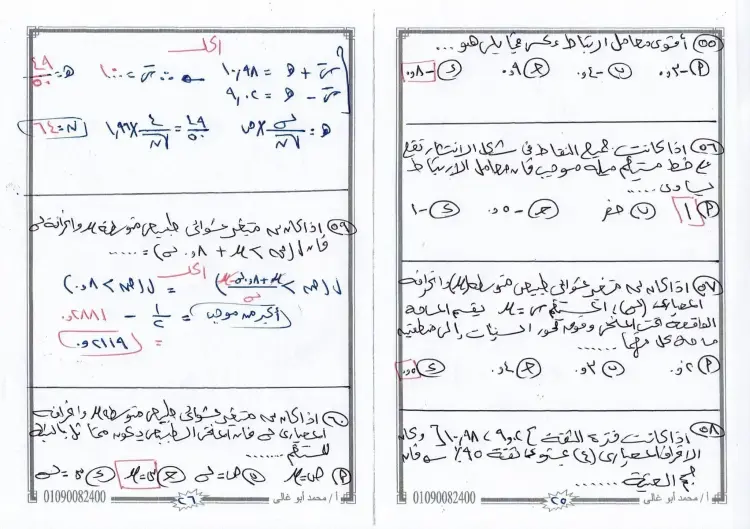 ٥٥ أقوى معامل ارتباط عكسى مما يلى هو ...
P -٣و٠ ب -٤و٠ ج ٩و٠ د -٨و٠
٥٦ إذا كانت جميع النقاط فى شكل الانتشار تقع
على خط مستقيم ميله موجب فإن معامل الارتباط
يساوى .....
P ١ ب صفر ج -٥و٠ د -١
٥٧ إذا كان س متغير عشوائى طبيعى متوسطه (μ) وانحرافه
المعيارى (σ)، المستقيم س = μ يقسم المساحة
الواقعة تحت المنحنى وفوق محور السينات إلى منطقتين
مساحة كل منهما ......
P ٢و٠ ب ٣و٠ ج ٤و٠ د ٥و٠
٥٨ إذا كانت فترة الثقة ]٩,٠٢ ، ١٠,٩٨[ وكان
الانحراف المعيارى (٤) عند مستوى ثقة ٩٥٪ فإن
حجم العينة .......
أ / محمد أبو غالى ٢٥ 01090082400
الحل
س + هـ = ١٠,٩٨ ∴ س = ١٠
س - هـ = ٩,٠٢
هـ = ٤٩/٥٠
هـ = σ/√ن × ص ٤٩/٥٠ = ٤/√ن × ١,٩٦ ن = ٦٤
٥٩ إذا كان س متغير عشوائى طبيعى متوسطه μ وانحرافه σ
فإن ل(س > μ + ٨و٠ σ) = .....
الحل
ل(ص > (μ + ٨و٠ σ - μ)/σ) = ل(ص > ٨و٠)
أكبر من موجب = ١/٢ - ٢٨٨١و٠
= ٢١١٩و٠
٦٠ إذا كان س متغير عشوائى طبيعى متوسطه μ وانحرافه
المعيارى σ فإن المنحنى الطبيعى يكون متماثلا بالنسبة
للمستقيم .......
P ص = μ ب ص = σ ج س = μ د س = σ
أ / محمد أبو غالى ٢٦ 01090082400